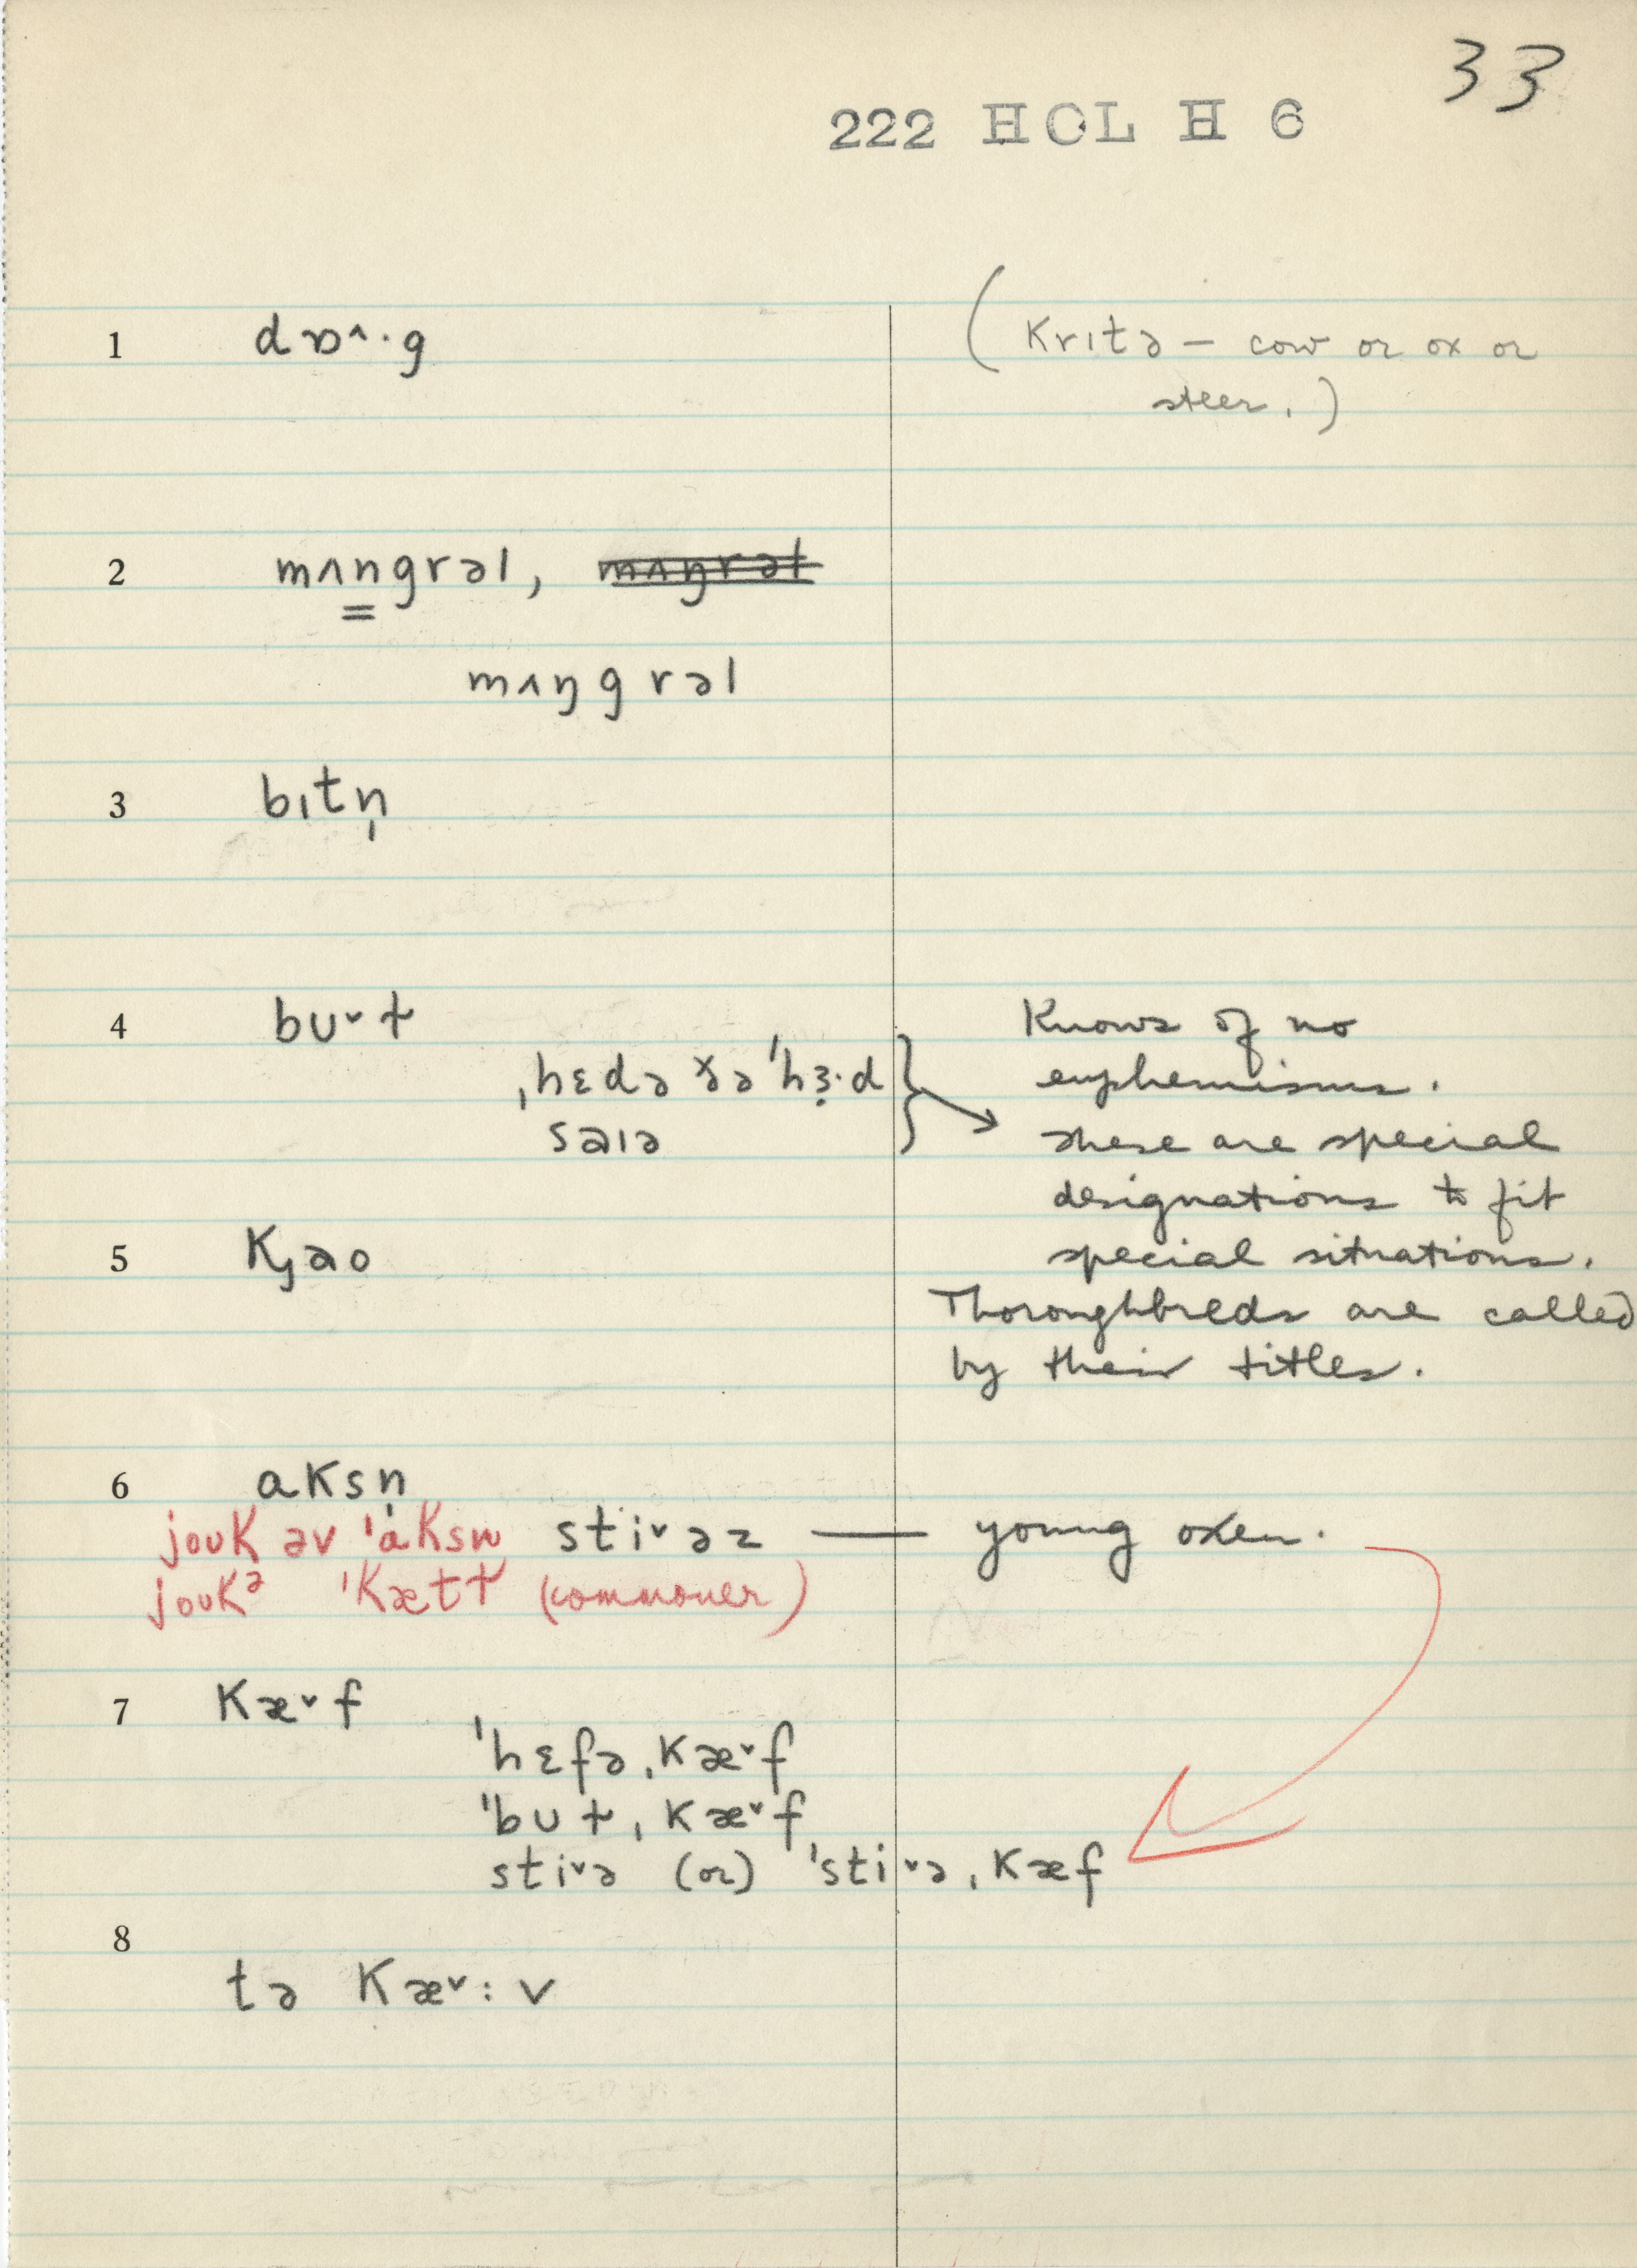 33
222 HCL H 6
1 dɒ^·g (Kritə – cow or ox or
steer.)
2 mʌngrəl, mʌŋrəl
mʌŋgrəl
3 bɪtn̩
4 bᴜˇɫ Knows of no
ˌhɛdə ðə ˈhɜ̣·d euphemisms.
saɪə These are special
designations to fit
5 Kȷao special situations.
Thoroughbreds are called
by their titles.
6 aksn̩
joᴜK əv ˈaksn stiˇəz — young oxen.
joᴜKə ˈKætɫ (commoner)
7 Kæˇf
ˈhɛfəˌKæˇf
ˈbᴜɫˌKæˇf
stiˇə (or) ˈstiˇəˌKæf
8
tə Kæˇ:v